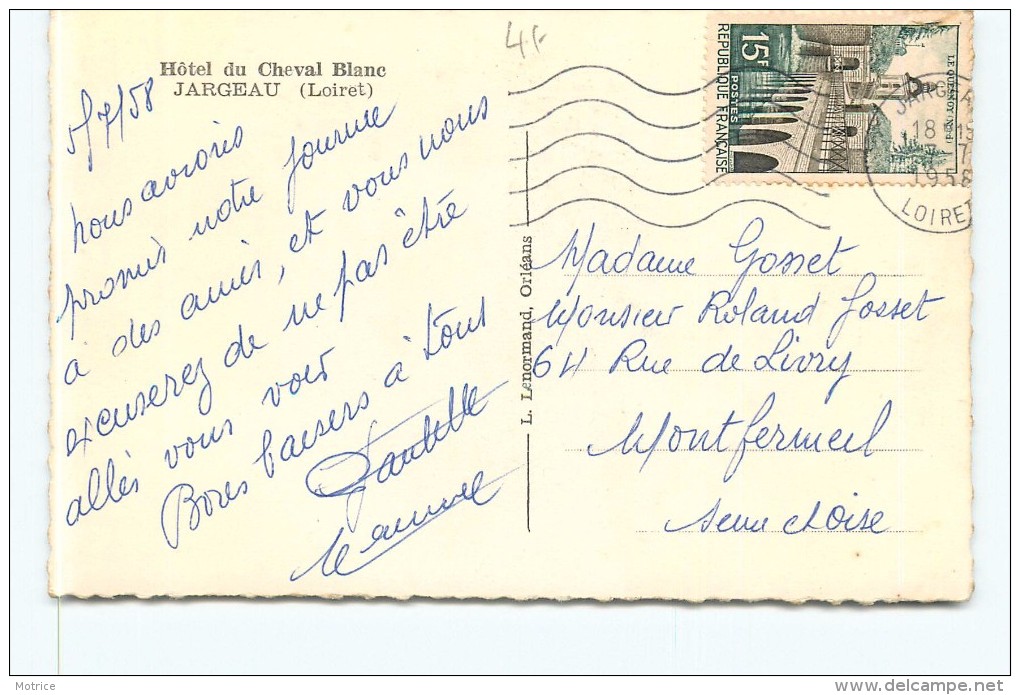 4f-
Hôtel du Cheval Blanc
JARGEAU (Loiret)
5/7/58
nous avions
promis notre journée
à des amis, et vous nous
excuserez de ne pas être
allés vous voir
Bons baisers à tous
15F
POSTES
REPUBLIQUE FRANÇAISE
LE QUESNOY (NORD)
JARGEA
18 H 15
7
1958
LOIRET
L. Lenormand, Orléans
Madame Gosset
Monsieur Roland Gosset
64 Rue de Livry
Montfermeil
Seine et Oise
Motrice
delcampe.net